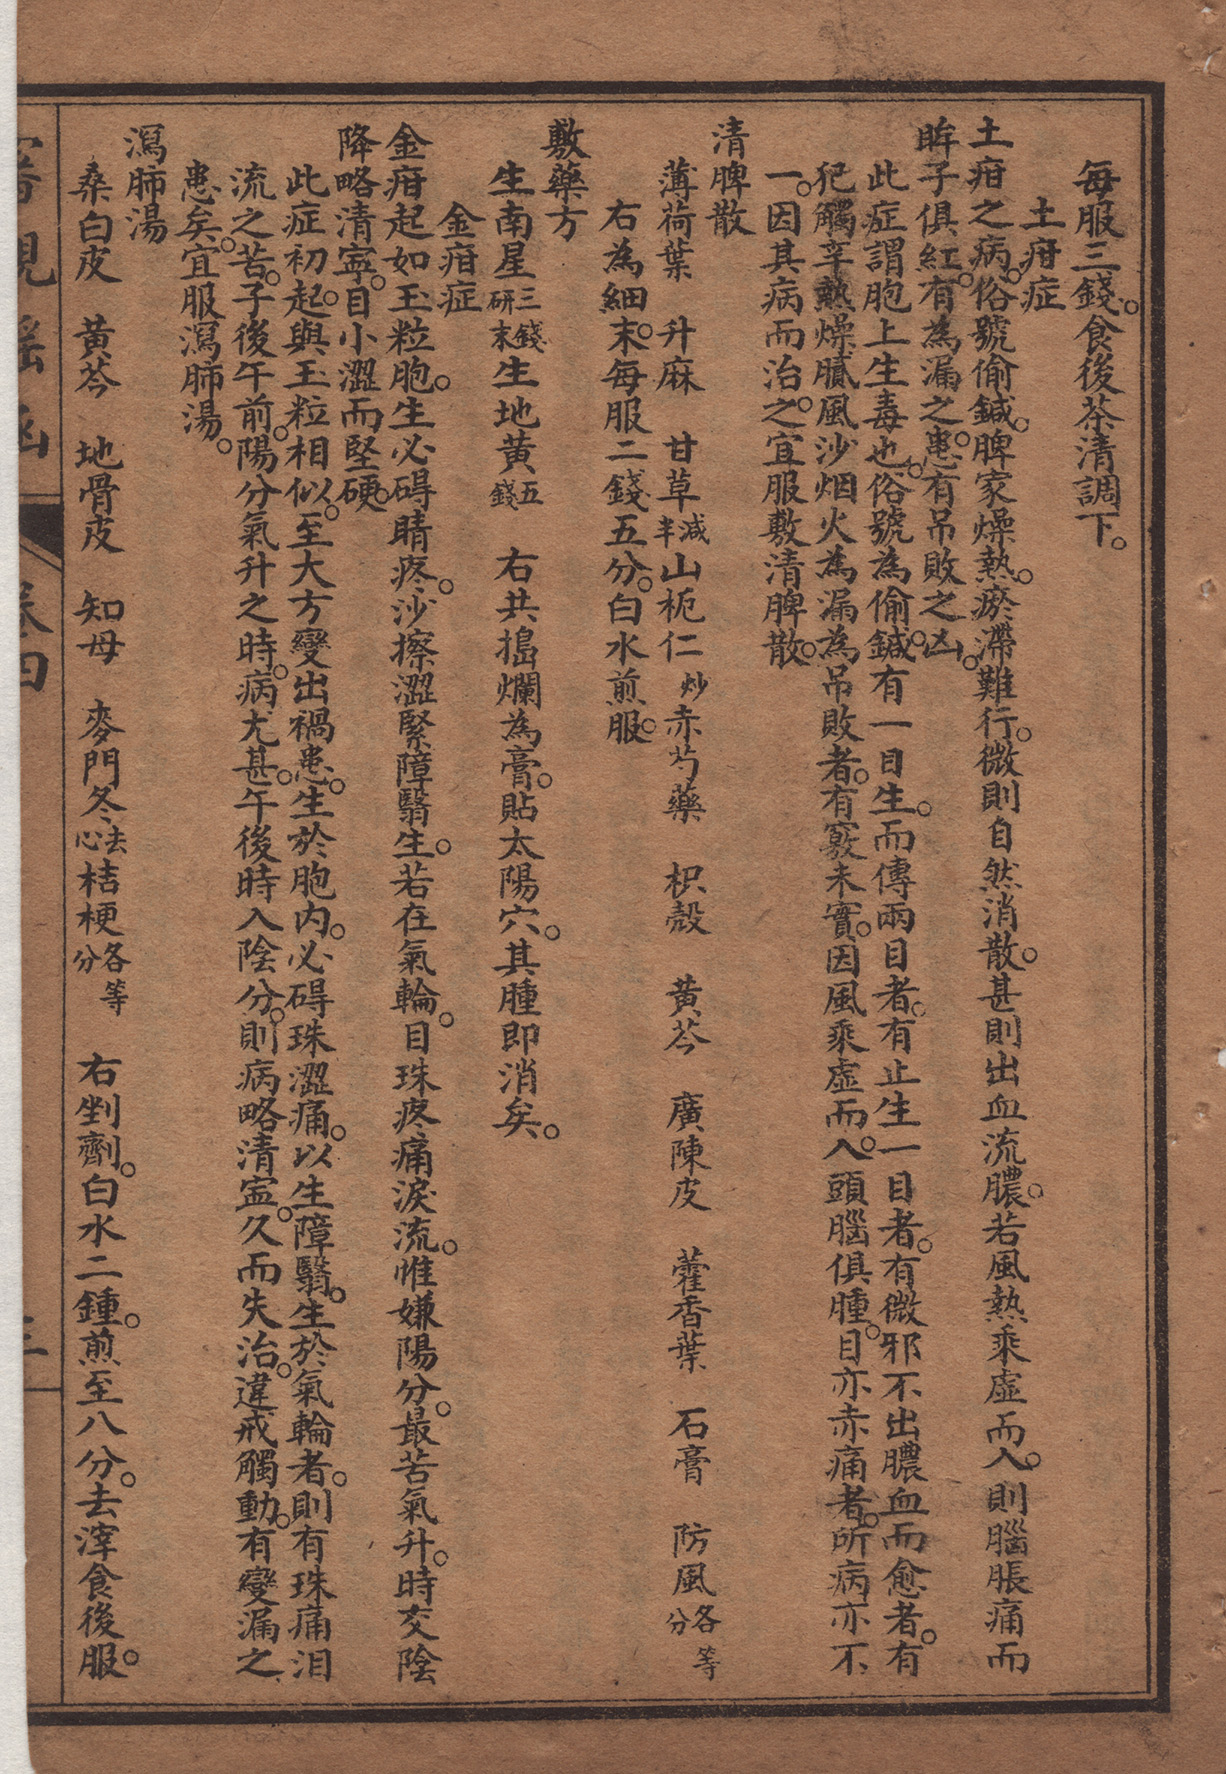 每服三錢。食後茶清調下。
土疳症
土疳之病。俗號偷鍼。脾家燥熱。瘀滯難行。微則自然消散。甚則出血流膿。若風熱乘虛而入。則腦脹痛而
眸子俱紅。有為漏之患。有吊敗之凶。
此症謂胞上生毒也。俗號為偷鍼。有一目生。而傳兩目者。有止生一目者。有微邪不出膿血而愈者。有
犯觸辛熱燥膩風沙烟火為漏為吊敗者。有竅未實。因風乘虛而入。頭腦俱腫。目亦赤痛者。所病亦不
一。因其病而治之。宜服敷清脾散。
清脾散
薄荷葉　升麻　甘草減半　山梔仁炒　赤芍藥　枳殼　黃芩　廣陳皮　藿香葉　石膏　防風各等分
右為細末。每服二錢五分。白水煎服。
敷藥方
生南星三錢研末　生地黃五錢　右共搗爛為膏。貼太陽穴。其腫即消矣。
金疳症
金疳起如玉粒胞。生必碍睛疼。沙擦澀緊障翳生。若在氣輪。目珠疼痛淚流。惟嫌陽分。最苦氣升。時交陰
降略清寧。目小澀而堅硬。
此症初起。與玉粒相似。至大方變出禍患。生於胞內。必碍珠澀痛。以生障翳。生於氣輪者。則有珠痛泪
流之苦。子後午前。陽分氣升之時。病尤甚。午後時入陰分。則病略清寧。久而失治。違戒觸動。有變漏之
患矣。宜服瀉肺湯。
瀉肺湯
桑白皮　黃芩　地骨皮　知母　麥門冬去心　桔梗各等分　右剉劑。白水二鍾。煎至八分。去滓食後服。
審視瑤函　卷四　三